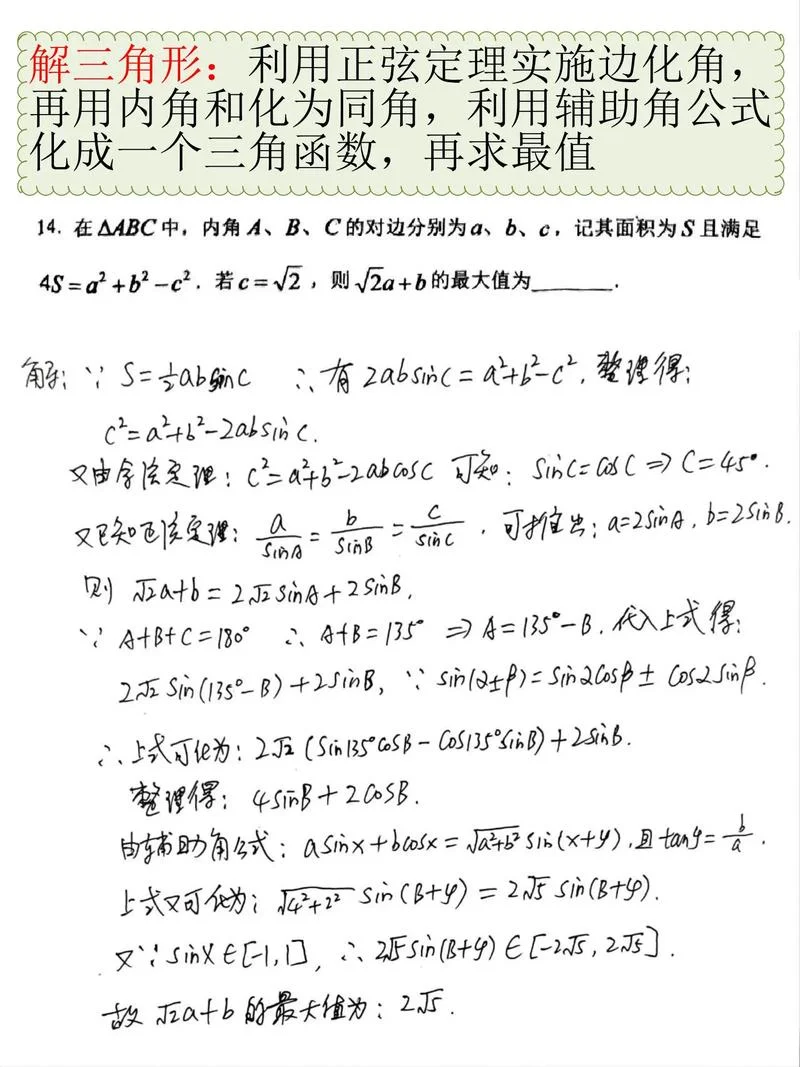 解三角形：利用正弦定理实施边化角，
再用内角和化为同角，利用辅助角公式
化成一个三角函数，再求最值
14. 在 ΔABC 中，内角 A、B、C 的对边分别为 a、b、c，记其面积为 S 且满足
4S = a² + b² − c². 若 c = √2，则 √2a + b 的最大值为______.
解: ∵ S = ½absinC ∴有 2absinC = a²+b²−c², 整理得:
c² = a²+b²−2absinC.
又由余弦定理: c² = a²+b²−2abcosC 可知: sinC = cosC ⇒ C = 45°.
又已知正弦定理: a/sinA = b/sinB = c/sinC, 可推出: a=2sinA, b=2sinB.
则 √2a+b = 2√2sinA + 2sinB.
∵ A+B+C = 180° ∴ A+B = 135° ⇒ A = 135°−B. 代入上式得:
2√2sin(135°−B) + 2sinB, ∵ sin(α±β) = sinαcosβ ± cosαsinβ.
∴上式可化为: 2√2(sin135°cosB − cos135°sinB) + 2sinB.
整理得: 4sinB + 2cosB.
由辅助角公式: asinx + bcosx = √(a²+b²) sin(x+φ), 且 tanφ = b/a.
上式又可化为: √(4²+2²) sin(B+φ) = 2√5 sin(B+φ).
又∵ sinX ∈ [−1, 1], ∴ 2√5sin(B+φ) ∈ [−2√5, 2√5].
故 √2a+b 的最大值为: 2√5.